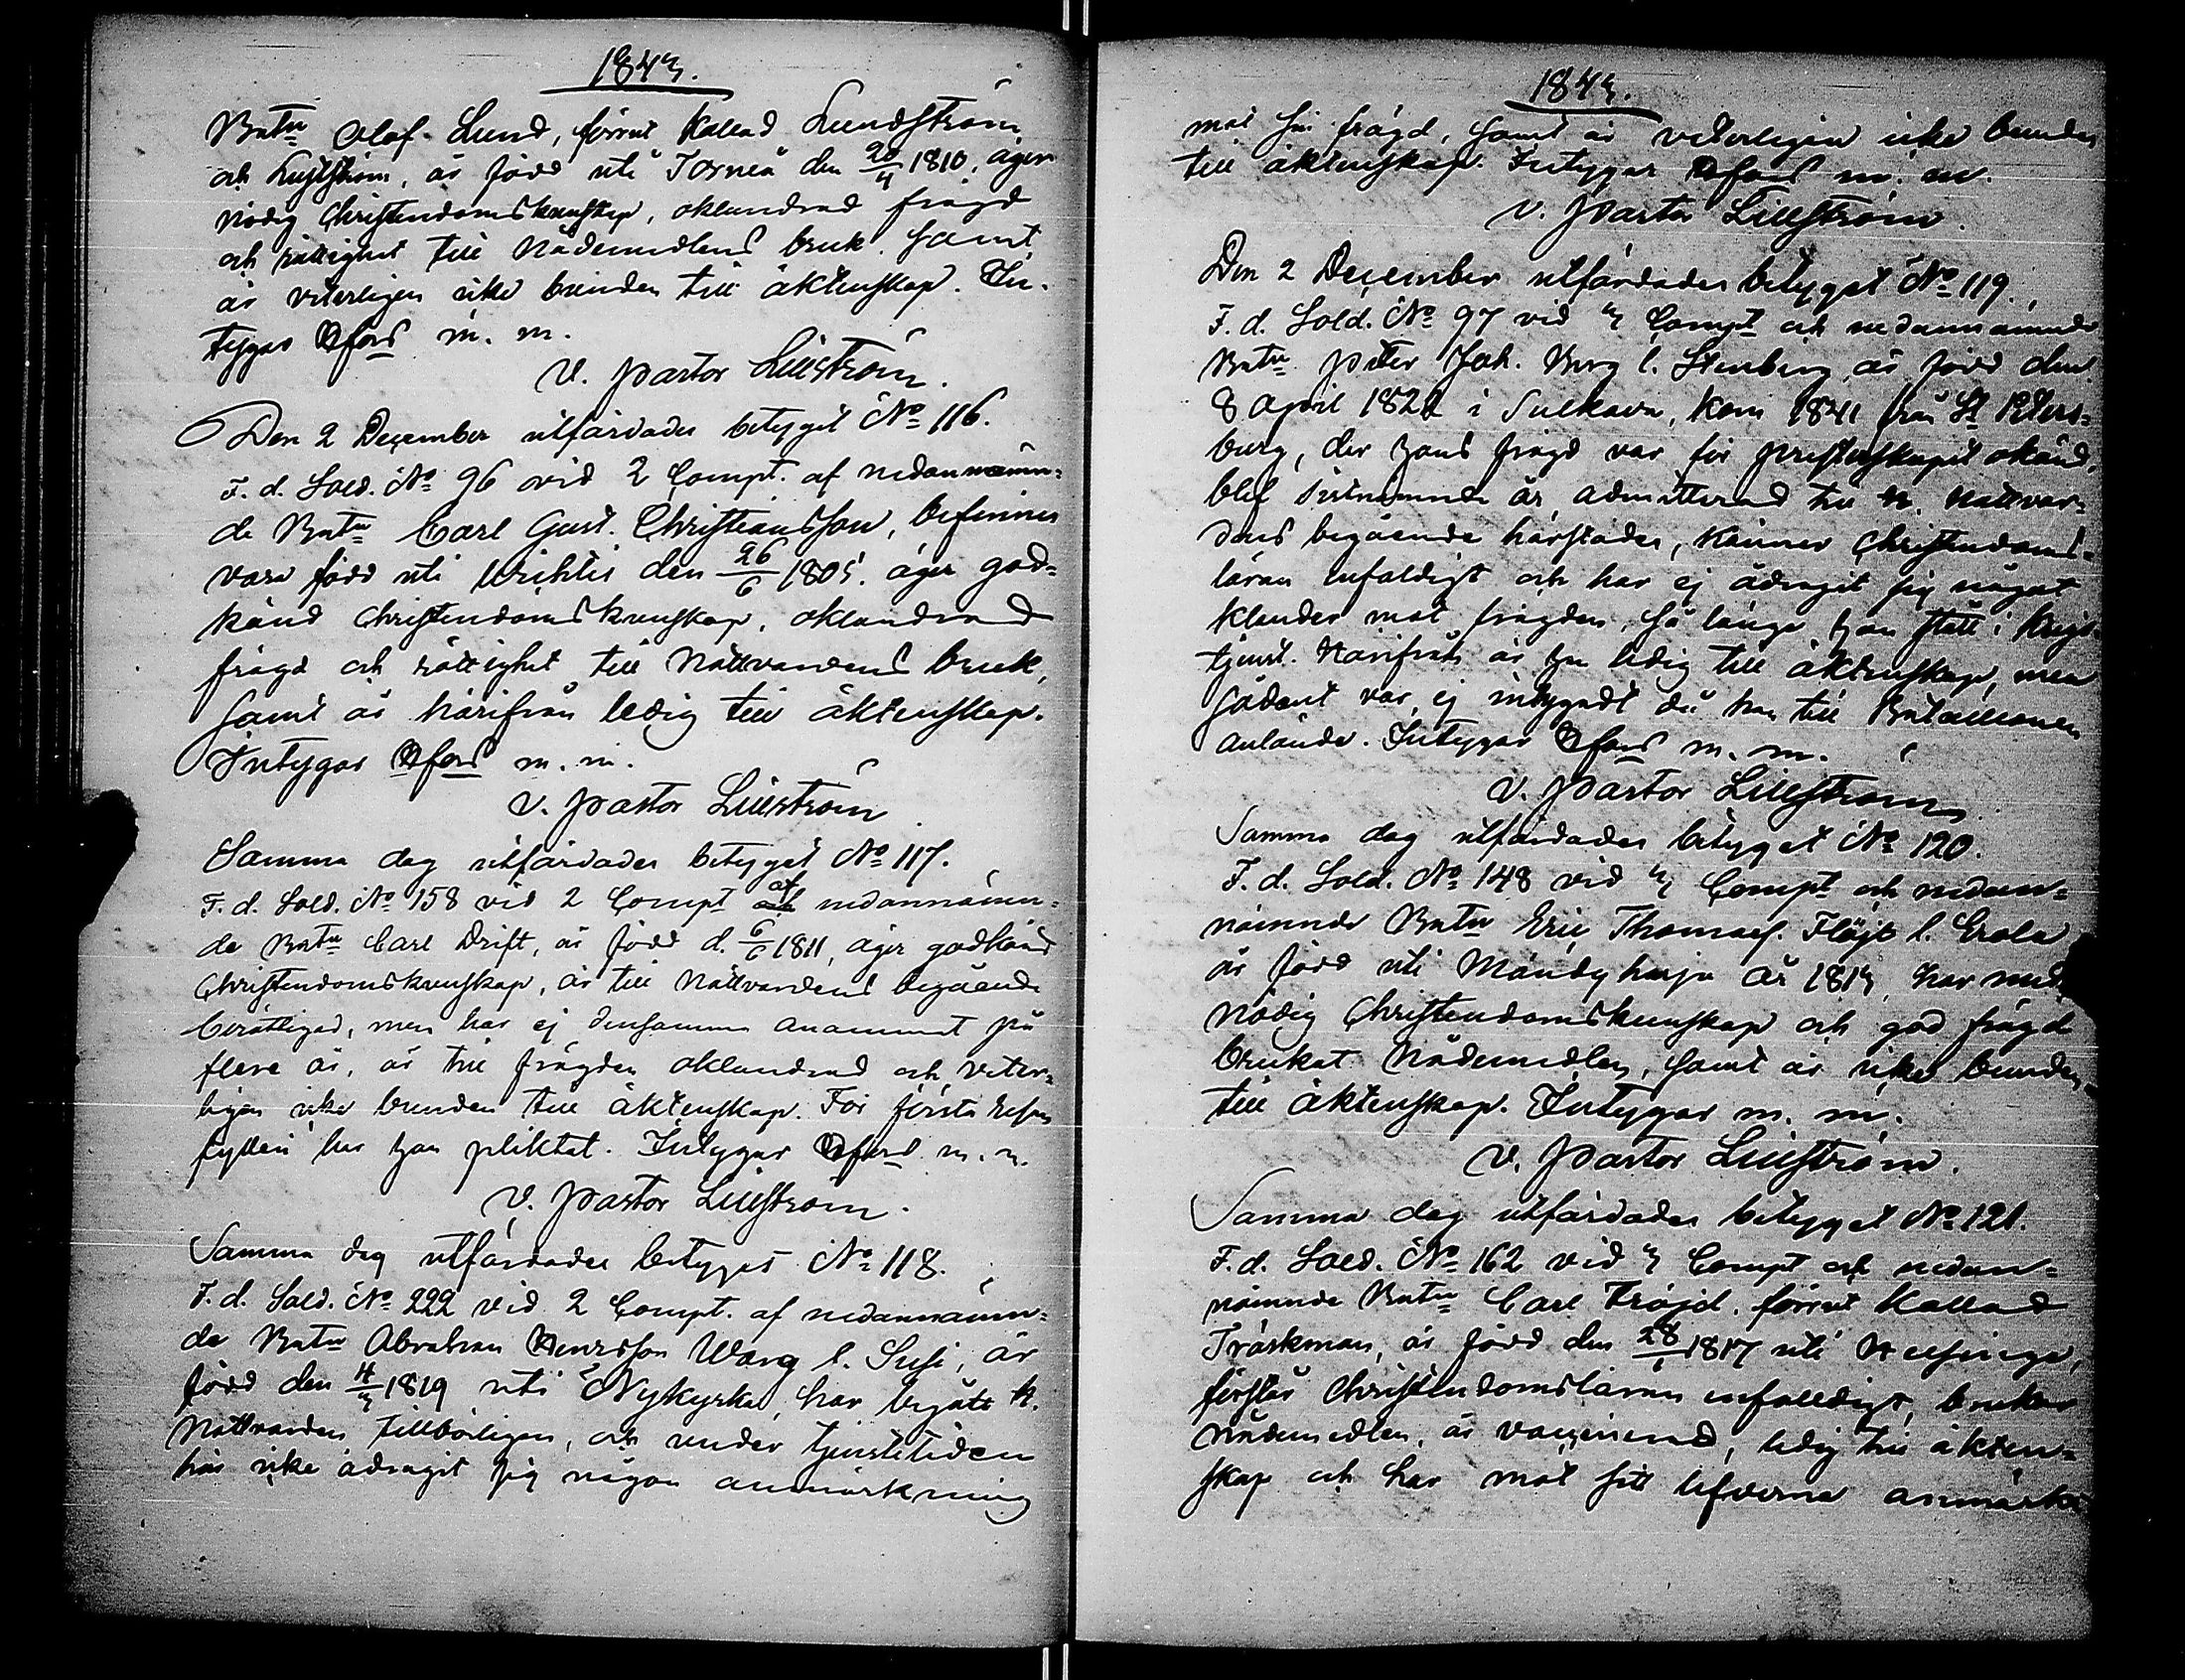 1843.
Batn Olof Lund, förrut kallad Lundström
och Lustström, är född uti Torneå den 20/4 1810, äger
nödig Christendomskunskap, oklandrad frägd
och rättighet till Nådemedlens bruk, samt
är veterligen icke bunden till äktenskap. In-
tygar H:fors m. m.
V. Pastor Lillström.
Den 2 December utfärdades betyget No 116.
F. d. Sold. No 96 vid 2 Compt. af nedannämn-
de Batn Carl Gust. Christiansson, befinnes
vara född uti Wichtis den 26/6 1805. äger god-
känd Christendomskunskap, oklandrad
frägd och rättighet till Nattvardens bruk,
samt är härifrån ledig till äktenskap.
Intygar H:fors m. m.
V. Pastor Lillström
Samma dag utfärdades betyget No 117.
F. d. Sold. No 158 vid 2 Compt af nedannämn-
de Batn Carl Drift, är född d. 6/6 1811, äger godkänd
Christendomskunskap, är till Nattvardens begående
berättigad, men har ej densamma anammat på
flere år, är till frägden oklandrad och veter-
ligen icke bunden till äktenskap. För första resan
fylleri har han pliktat. Intygar H:fors m. m.
V. Pastor Lillström.
Samma dag utfärdades betyget No 118.
F. d. Sold. No 222 vid 2 Compt. af nedannämn-
de Batn Abraham Henricsson Warg l. Susi, är
född den 4/3 1819 uti Nykyrka, har begått H.
Nattvarden tillbörligen, och under tjenstetiden
här icke ådragit sig någon anmärkning
1843.
mot sin frägd, samt är veterligen icke bunden
till äktenskap. Intygar H:fors m. m.
V. Pastor Lillström.
Den 2 December utfärdades betyget No 119.
F. d. Sold. No 97 vid 3 Compt och nedannämnde
Batn Peter Joh. Berg l. Stenberg, är född den
8 April 1822 i Sulkava, kom 1841 från St Peters-
burg, der hans frägd var för Presterskapet okänd,
blef sistnämnde år admitterad till H. Nattvar-
dens begående härstädes, känner Christendoms-
läran enfaldigt och har ej ådragit sig något
klander mot frägden, så länge han stått i Krigs-
tjenst. Härifrån är han ledig till äktenskap, men
sådant var ej intygadt då han till Bataillonen
anlände. Intygar H:fors m. m.
V. Pastor Lillström
Samma dag utfärdades betyget No 120.
F. d. Sold. No 148 vid 3 Compt och nedan-
nämnde Batn Eric Thomasf. Flöjt l. Erola
är född uti Mäntyharju år 1813, har med
nödig Christendomskunskap och god frägd
brukat Nådemedlen, samt är icke bunden
till äktenskap. Intygar m. m.
V. Pastor Lillström.
Samma dag utfärdades betyget No 121.
F. d. Sold. No 162 vid 3 Compt och nedan-
nämnde Batn Carl Fröjd, förrut kallad
Träskman, är född den 28/1 1817 uti Helsinge,
förstår Christendomsläran enfalldigt, brukar
Nådemedlen, är vaccinerad, ledig till äkten-
skap och har mot sitt lefverne anmärkn